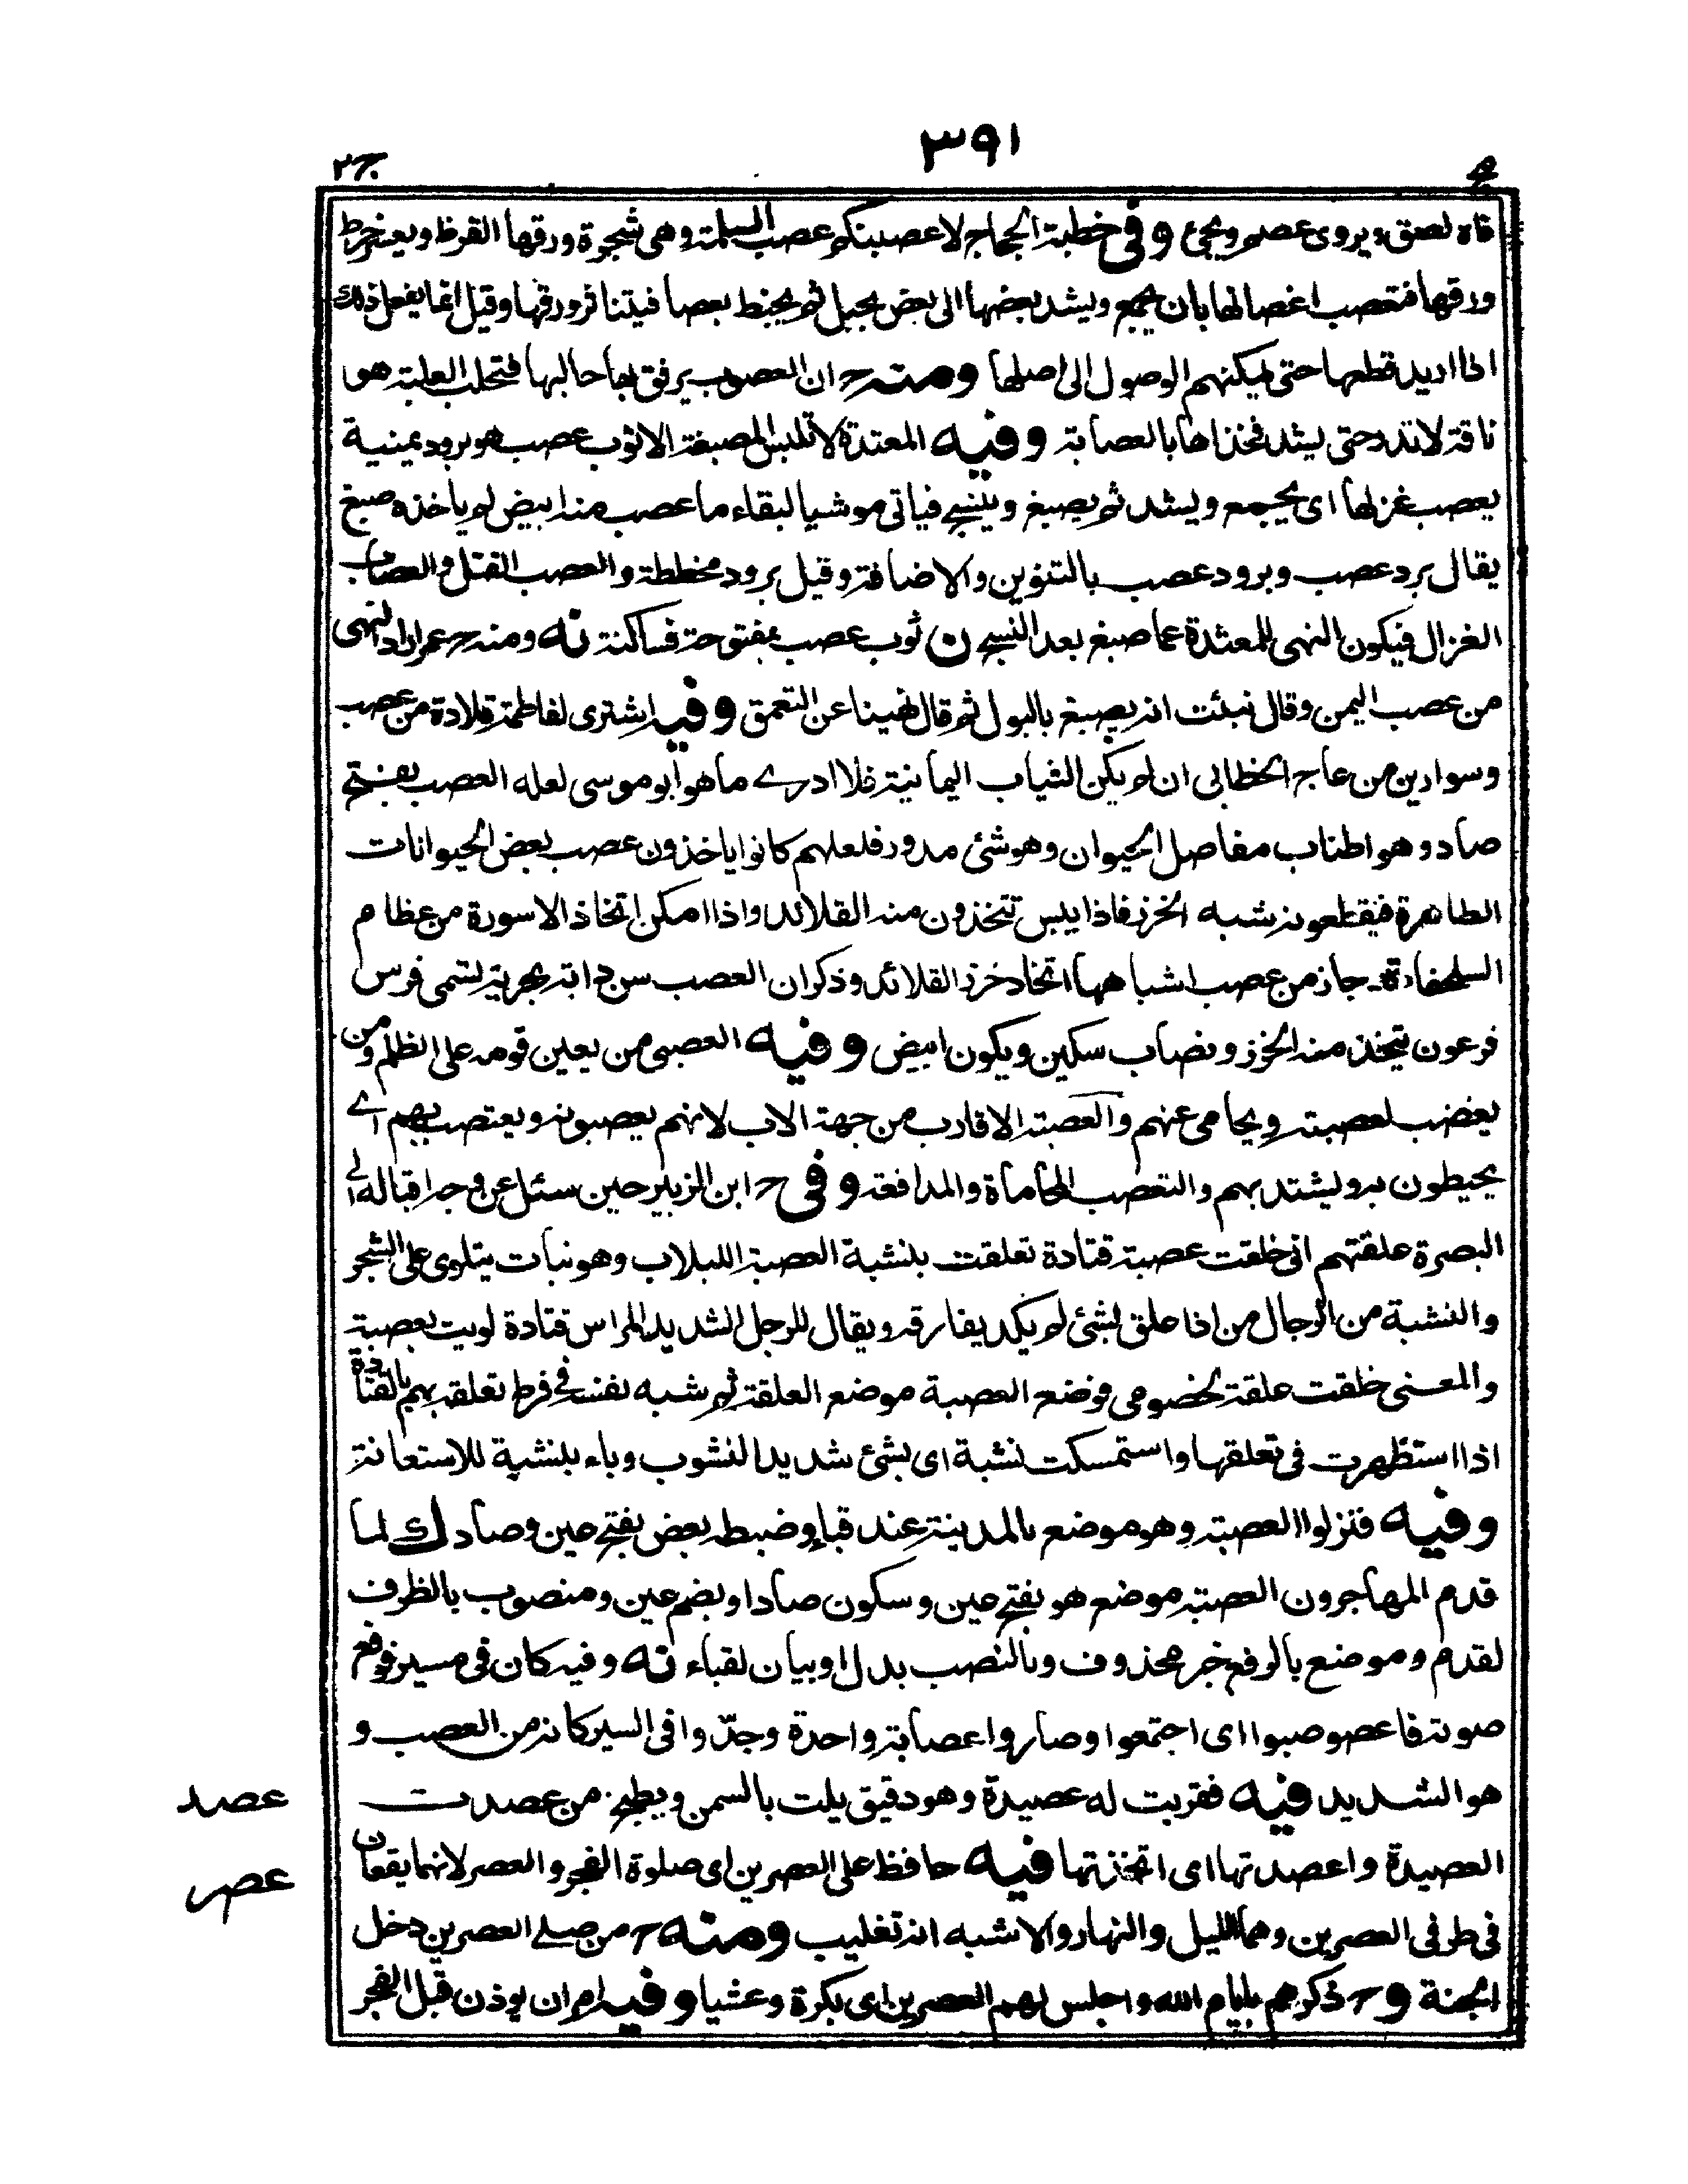 ٣٩١
ج٢
فاه لصق ويروى عصم ويجئ وفى خطبة الحجاج لاعصبنكم عصب السلمة وهى شجرة ورقها القرظ ويعسر خرط
ورقها فتعصب اغصانها بان يجمع ويشد بعضها الى بعض بحبل ثم يخبط بعصا فيتناثر ورقها وقيل انما يفعل ذلك
اذا اريد قطعها حتى يمكنهم الوصول الى اصلها ومنه ح ان العصوب يرفق بها حالبها فتحلب العلبة هو
ناقة لا تدر حتى يشد فخذاها بالعصابة وفيه المعتدة لا تلبس المصبغة الا ثوب عصب هو برود يمنية
يعصب غزلها اى يجمع ويشد ثم يصبغ وينسج فياتى موشيا لبقاء ما عصب منه ابيض لم ياخذه صبغ
يقال برد عصب وبرود عصب بالتنوين والاضافة وقيل برود مخططة والعصب الفتل والعصاب
الغزال فيكون النهى للمعتدة عما صبغ بعد النسج ن ثوب عصب بمفتوحة فساكنة نه ومنه ح عمر اراد النهى
من عصب اليمن وقال نبئت انه يصبغ بالبول ثم قال نهينا عن التعمق وفيه اشترى لفاطمة قلادة من عصب
وسوارين من عاج الخطابى ان لم يكن الثياب اليمانية فلا ادرى ما هو ابو موسى لعله العصب بفتح
صاد وهو اطناب مفاصل الحيوان وهو شئ مدور فلعلهم كانوا ياخذون عصب بعض الحيوانات
الطاهرة فيقطعونه شبه الخرز فاذا يبس تتخذون منه القلائد واذا امكن اتخاذ الاسورة من عظام
السلحفاة جاز من عصب اشباهها اتخاذ خرز القلائد وذكر ان العصب سن دابة بحرية تسمى فرس
فرعون يتخذ منه الخرز ونصاب سكين ويكون ابيض وفيه العصبى من يعين قومه على الظلم ومن
يغضب لعصبته ويحامى عنهم والعصبة الاقارب من جهة الاب لانهم يعصبونه ويعتصب بهم اى
يحيطون به ويشتد بهم والتعصب المحاماة والمدافعة وفى ح ابن الزبير حين سئل عن وجه اقباله الى
البصرة علقتهم انى خلقت عصبة قتادة تعلقت بنشبة العصبة اللبلاب وهو نبات يتلوى على الشجر
والنشبة من الرجال من اذا علق بشئ لم يكد يفارقه ويقال للرجل الشديد المراس قتادة لويت بعصبة
والمعنى خلقت علقة لخصومى فوضع العصبة موضع العلقة ثم شبه نفسه فى فرط تعلقه بهم بالقتادة
اذا استظهرت فى تعلقها واستمسكت نشبة اى بشئ شديد النشوب وباء بنشبة للاستعانة
وفيه فنزلوا العصبة وهو موضع بالمدينة عند قباء وضبطه بعض بفتح عين وصاد ك لما
قدم المهاجرون العصبة موضع هو بفتح عين وسكون صاد او بضم عين ومنصوب بالظرف
لقدم وموضع بالرفع خبر محذوف وبالنصب بدل او بيان لقباء نه وفيه كان فى مسير فرفع
صوته فاعصوصبوا اى اجتمعوا وصاروا عصابة واحدة وجدّوا فى السير كانه من العصب و
هو الشديد فيه فقربت له عصيدة وهو دقيق يلت بالسمن ويطبخ من عصدت
عصد
العصيدة واعصدتها اى اتخذتها فيه حافظ على العصرين اى صلوة الفجر والعصر لانهما يقعان
عصر
فى طرفى العصرين وهما الليل والنهار والاشبه انه تغليب ومنه ح من صلى العصرين دخل
الجنة وح ذكرهم بايام الله واجلس لهم العصرين اى بكرة وعشيا وفيه امر ان يوذن قبل الفجر